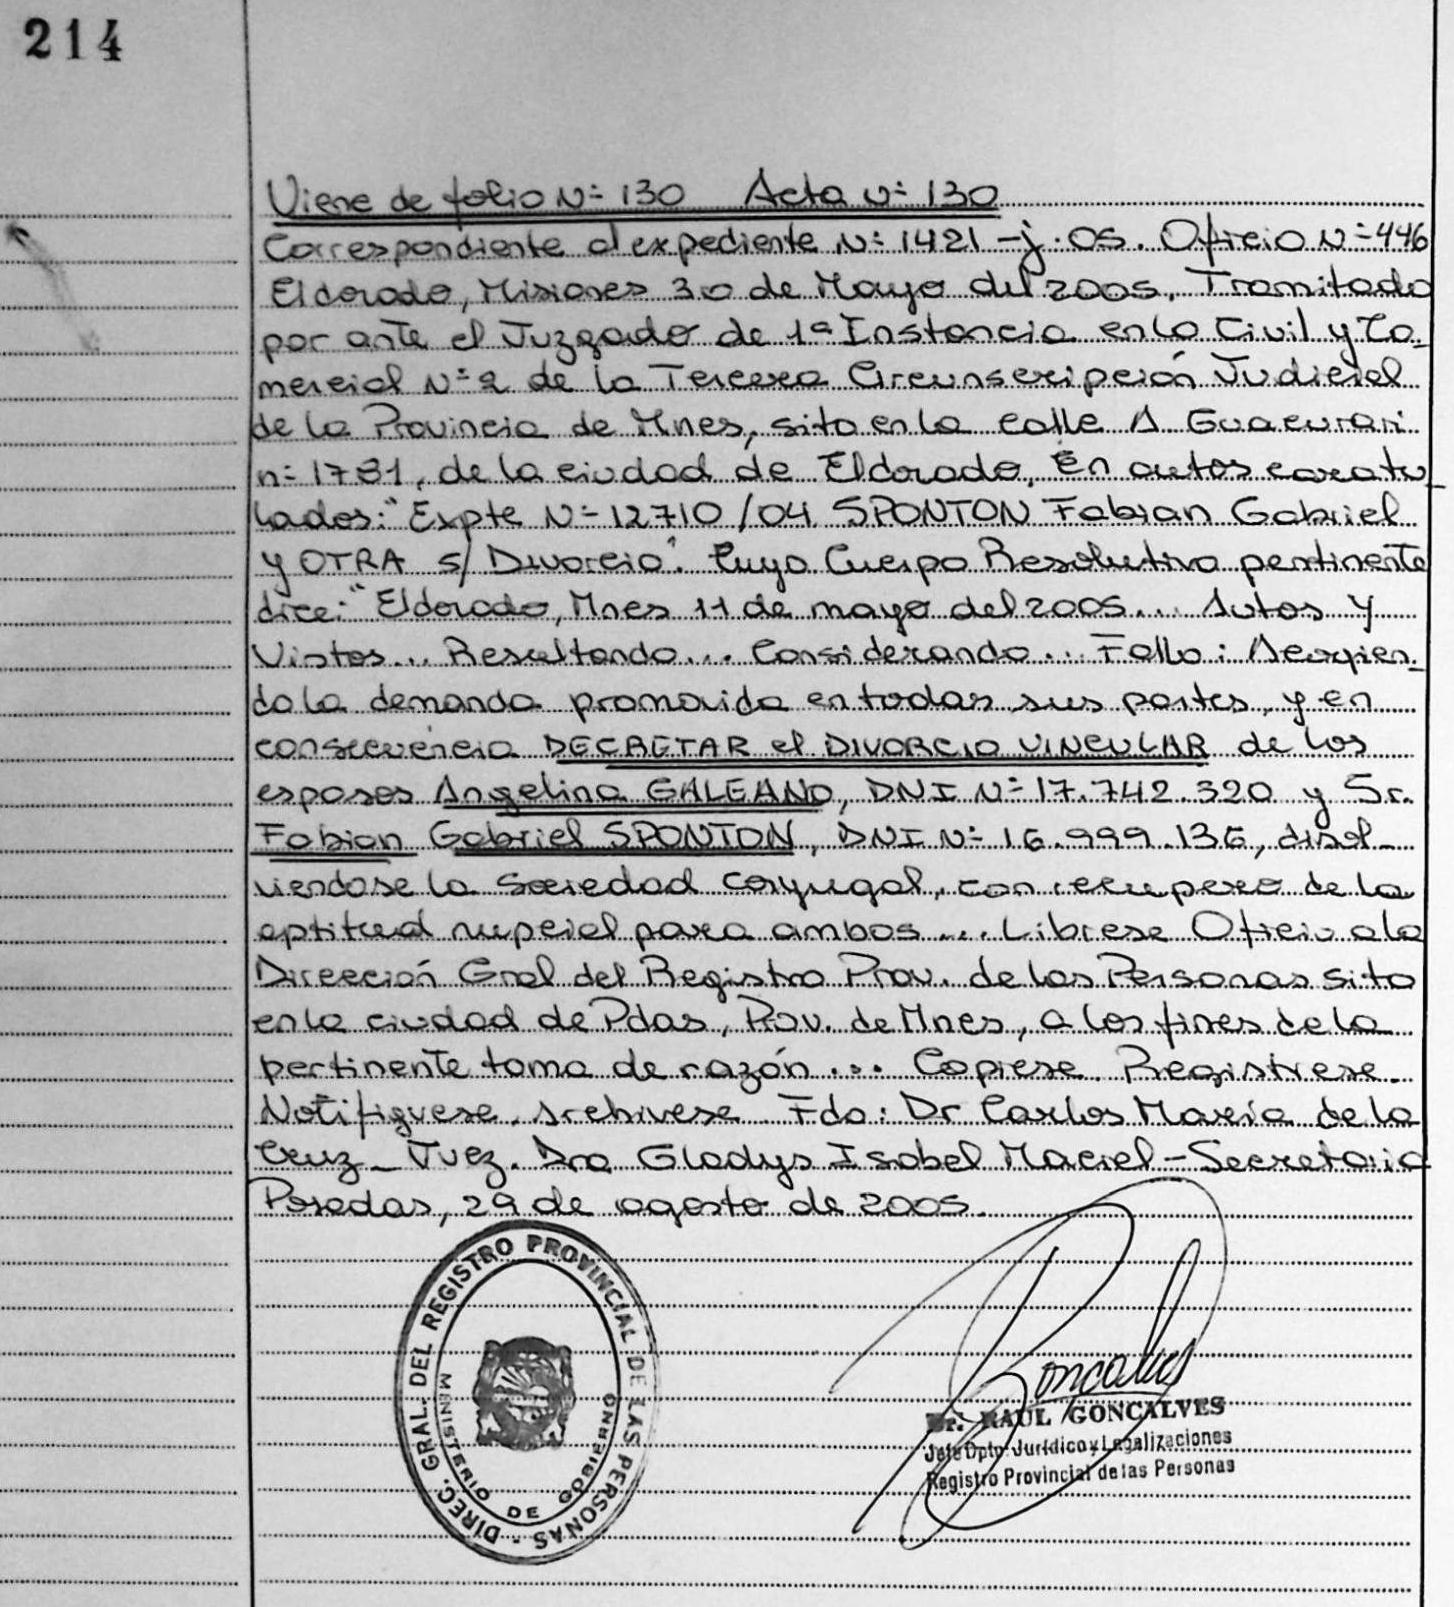 214
Viene de folio Nº 130 Acta Nº 130
Correspondiente al expediente Nº 1421 -j-05. Oficio Nº 446
Eldorado, Misiones 30 de Mayo del 2005. Tramitado
por ante el Juzgado de 1ª Instancia en lo Civil y Co-
mercial Nº 2 de la Tercera Circunscripción Judicial
de la Provincia de Mnes, sito en la calle A Guacurari
nº 1781, de la ciudad de Eldorado, En autos caratu
lados: "Expte Nº 12710/04 SPONTON Fabian Gabriel
y OTRA s/ Divorcio". Cuyo Cuerpo Resolutivo pertinente
dice: "Eldorado, Mnes 11 de mayo del 2005... Autos y
Vistos... Resultando... Considerando... Fallo: Acogien-
do la demanda promovida en todas sus partes, y en
consecuencia DECRETAR el DIVORCIO VINCULAR de los
esposos Angelina GALEANO, DNI Nº 17.742.320 y Sr.
Fabian Gabriel SPONTON, DNI Nº 16.999.136, disol-
viendose la Sociedad Conyugal, con recupero de la
aptitud nupcial para ambos... Librese Oficio a la
Dirección Gral del Registro Prov. de las Personas sito
en la ciudad de Pdas, Prov. de Mnes, a los fines de la
pertinente toma de razón... Copiese. Registrese.
Notifiquese. Archivese. Fdo: Dr Carlos María de la
Cruz - Juez. Dra Gladys Isabel Maciel - Secretaria
Posadas, 29 de agosto de 2005.
DIREC. GRAL. DEL REGISTRO PROVINCIAL DE LAS PERSONAS
MINISTERIO DE GOBIERNO
Goncalves
Dr. RAUL GONCALVES
Jefe Dpto. Jurídico y Legalizaciones
Registro Provincial de las Personas